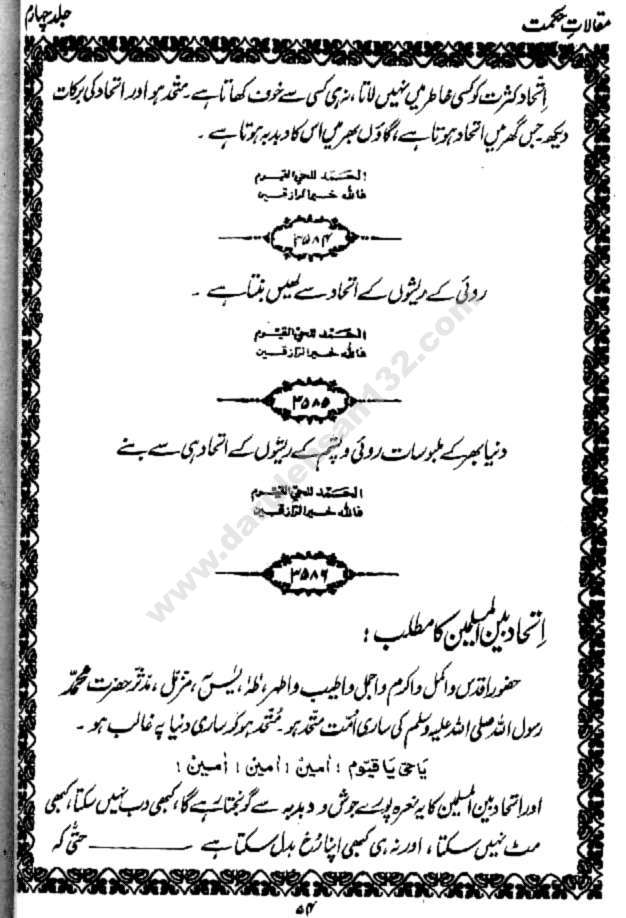 مقالاتِ حکمت
جلد چہارم
اِتّحاد کثرت کو کسی خاطر میں نہیں لاتا، نہ ہی کسی سے خوف کھاتا ہے۔ متّحد ہو اور اتحاد کی برکات
دیکھ جس گھر میں اتحاد ہوتا ہے، گاؤں بھر میں اس کا دبدبہ ہوتا ہے ۔
الحَمد للحيّ القيّوم
فالله خيرالرازقين
۳۵۸۴
روئی کے ریشوں کے اتحاد سے لھیس بنتا ہے ۔
الحَمد للحيّ القيّوم
فالله خيرالرازقين
۳۵۸۵
دنیا بھر کے ملبوسات روئی و پشم کے ریشوں کے اتحاد ہی سے بنے
الحَمد للحيّ القيّوم
فالله خيرالرازقين
۳۵۸۶
اِتحاد بین المسلمین کا مطلب :
حضور اقدس و اکمل و اکرم و اجمل و اطیب و اطہر، طٰہٰ، یٰسٓ، مزمّل، مدثّر حضرت محمّد
رسول اللہ صلی اللہ علیہ وسلم کی ساری اُمّت متّحد ہو۔ مُتّحد ہو کر ساری دنیا پہ غالب ہو ۔
يَا حَيُّ يَا قيّوم : اٰمين : اٰمين : اٰمين :
اور اِتحاد بین المسلمین کا یہ نعرہ پورے جوش و دبدبہ سے گونجتا رہے گا، کبھی دب نہیں سکتا، کبھی
مٹ نہیں سکتا ، اور نہ ہی کبھی اپنا رُخ بدل سکتا ہے ــــــــــ حتّٰی کہ
۵۴